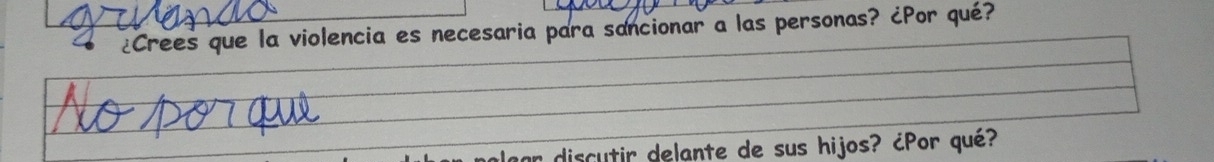 ¿Crees que la violencia es necesaria para sancionar a las personas? ¿Por qué?
No por que
discutir delante de sus hijos? ¿Por qué?